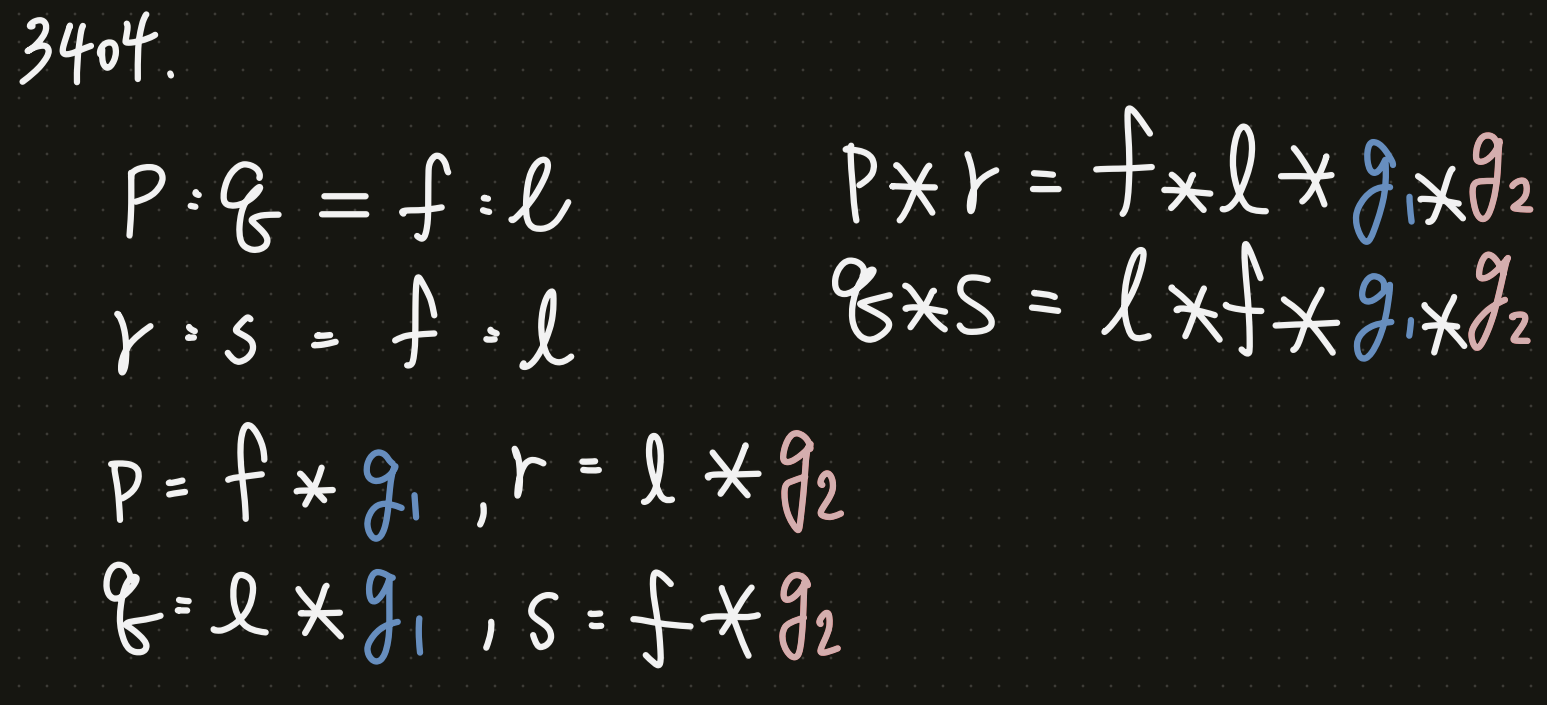 3404.
p : q = f : l
r : s = f : l
p = f * g₁ , r = l * g₂
q = l * g₁ , s = f * g₂
p * r = f * l * g₁ * g₂
q * s = l * f * g₁ * g₂